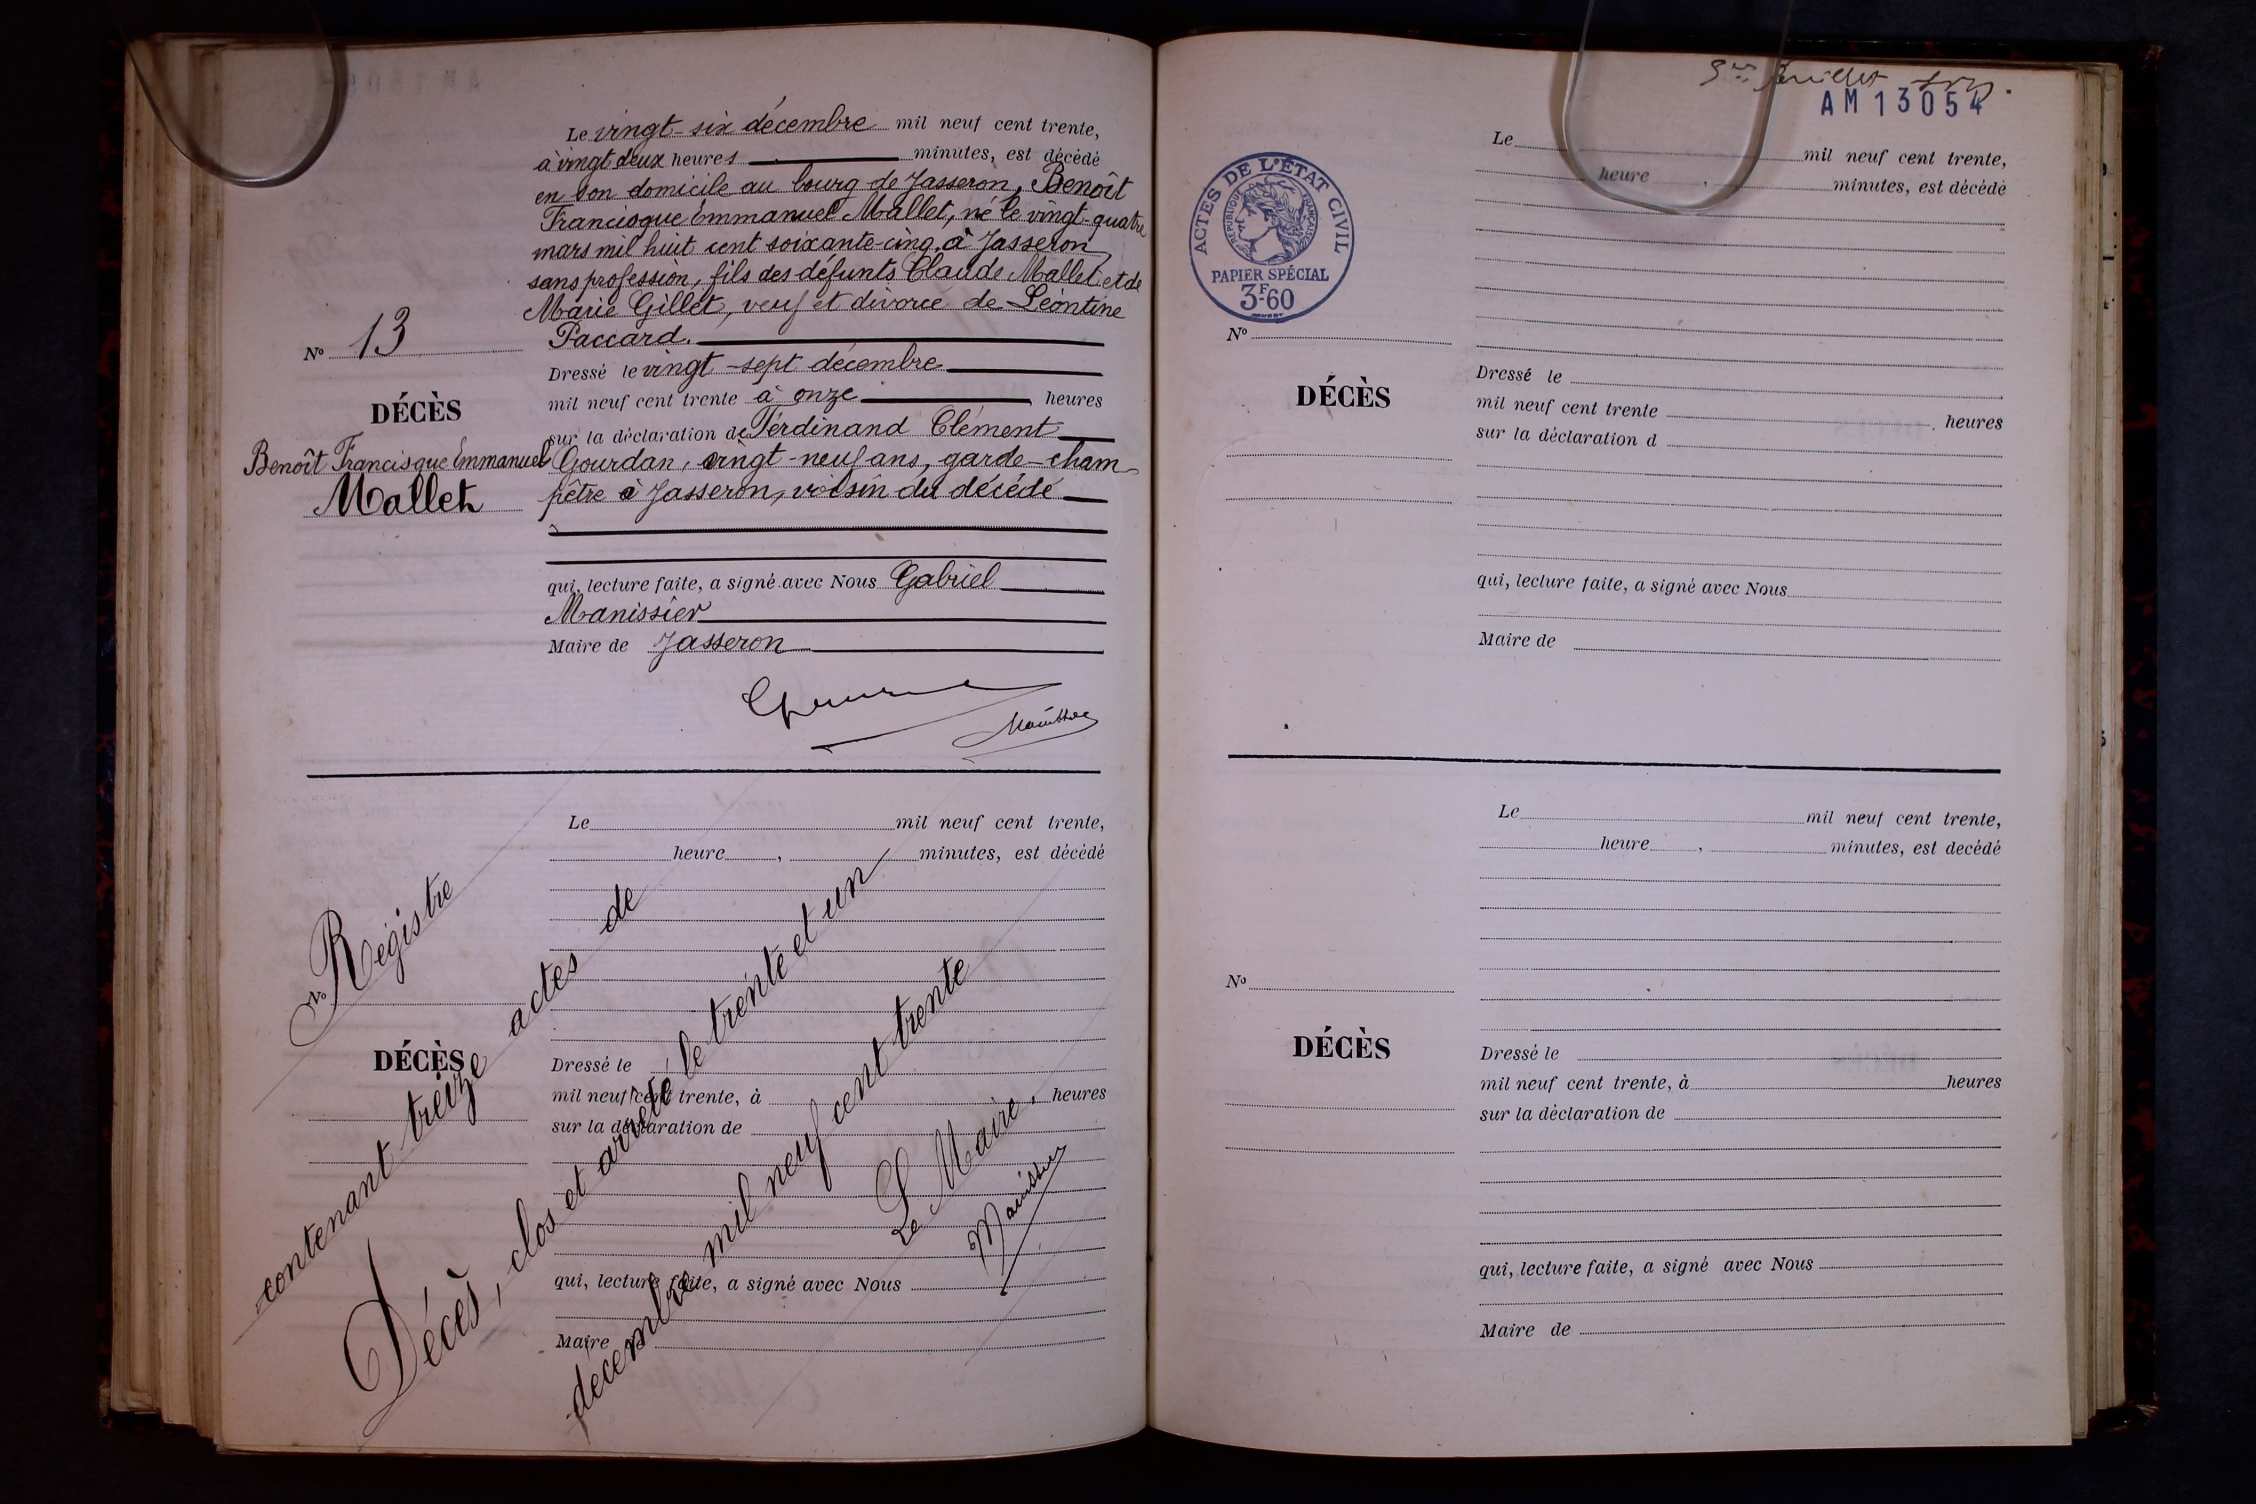 Le vingt-six décembre mil neuf cent trente,
à vingt deux heures minutes, est décédé
en son domicile au bourg de Jasseron, Benoît
Francisque Emmanuel Mallet, né le vingt-quatre
mars mil huit cent soixante-cinq, à Jasseron
sans profession, fils des défunts Claude Mallet et de
Marie Gillet, veuf et divorcé de Léontine
Paccard.
No 13
Dressé le vingt-sept décembre
mil neuf cent trente à onze heures
DÉCÈS
sur la déclaration de Ferdinand Clément
Benoît Francisque Emmanuel
Mallet
Gourdan, vingt-neuf ans, garde-cham-
pêtre à Jasseron, voisin du décédé
qui, lecture faite, a signé avec Nous Gabriel
Manissier
Maire de Jasseron
Manissier
Le mil neuf cent trente,
heure , minutes, est décédé
No
DÉCÈS
Dressé le
mil neuf cent trente, à heures
sur la déclaration de
qui, lecture faite, a signé avec Nous
Maire de
Registre
contenant treize actes de
Décès, clos et arrêté le trente et un
décembre mil neuf cent trente
Le Maire,
Manissier
AM13054
ACTES DE L'ÉTAT CIVIL
RÉPUBLIQUE FRANÇAISE
PAPIER SPÉCIAL
3F.60
Le mil neuf cent trente,
heure , minutes, est décédé
No
DÉCÈS
Dressé le
mil neuf cent trente heures
sur la déclaration d
qui, lecture faite, a signé avec Nous
Maire de
Le mil neuf cent trente,
heure , minutes, est decédé
No
DÉCÈS
Dressé le
mil neuf cent trente, à heures
sur la déclaration de
qui, lecture faite, a signé avec Nous
Maire de